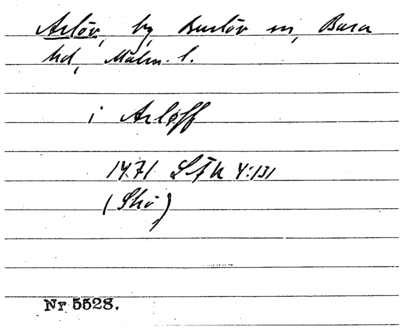 Arlöv, by Burlöv sn, Bara
hd, Malm. l.
i Arløff
1471 SFH 4:131
(Skå)
Nr 5528.